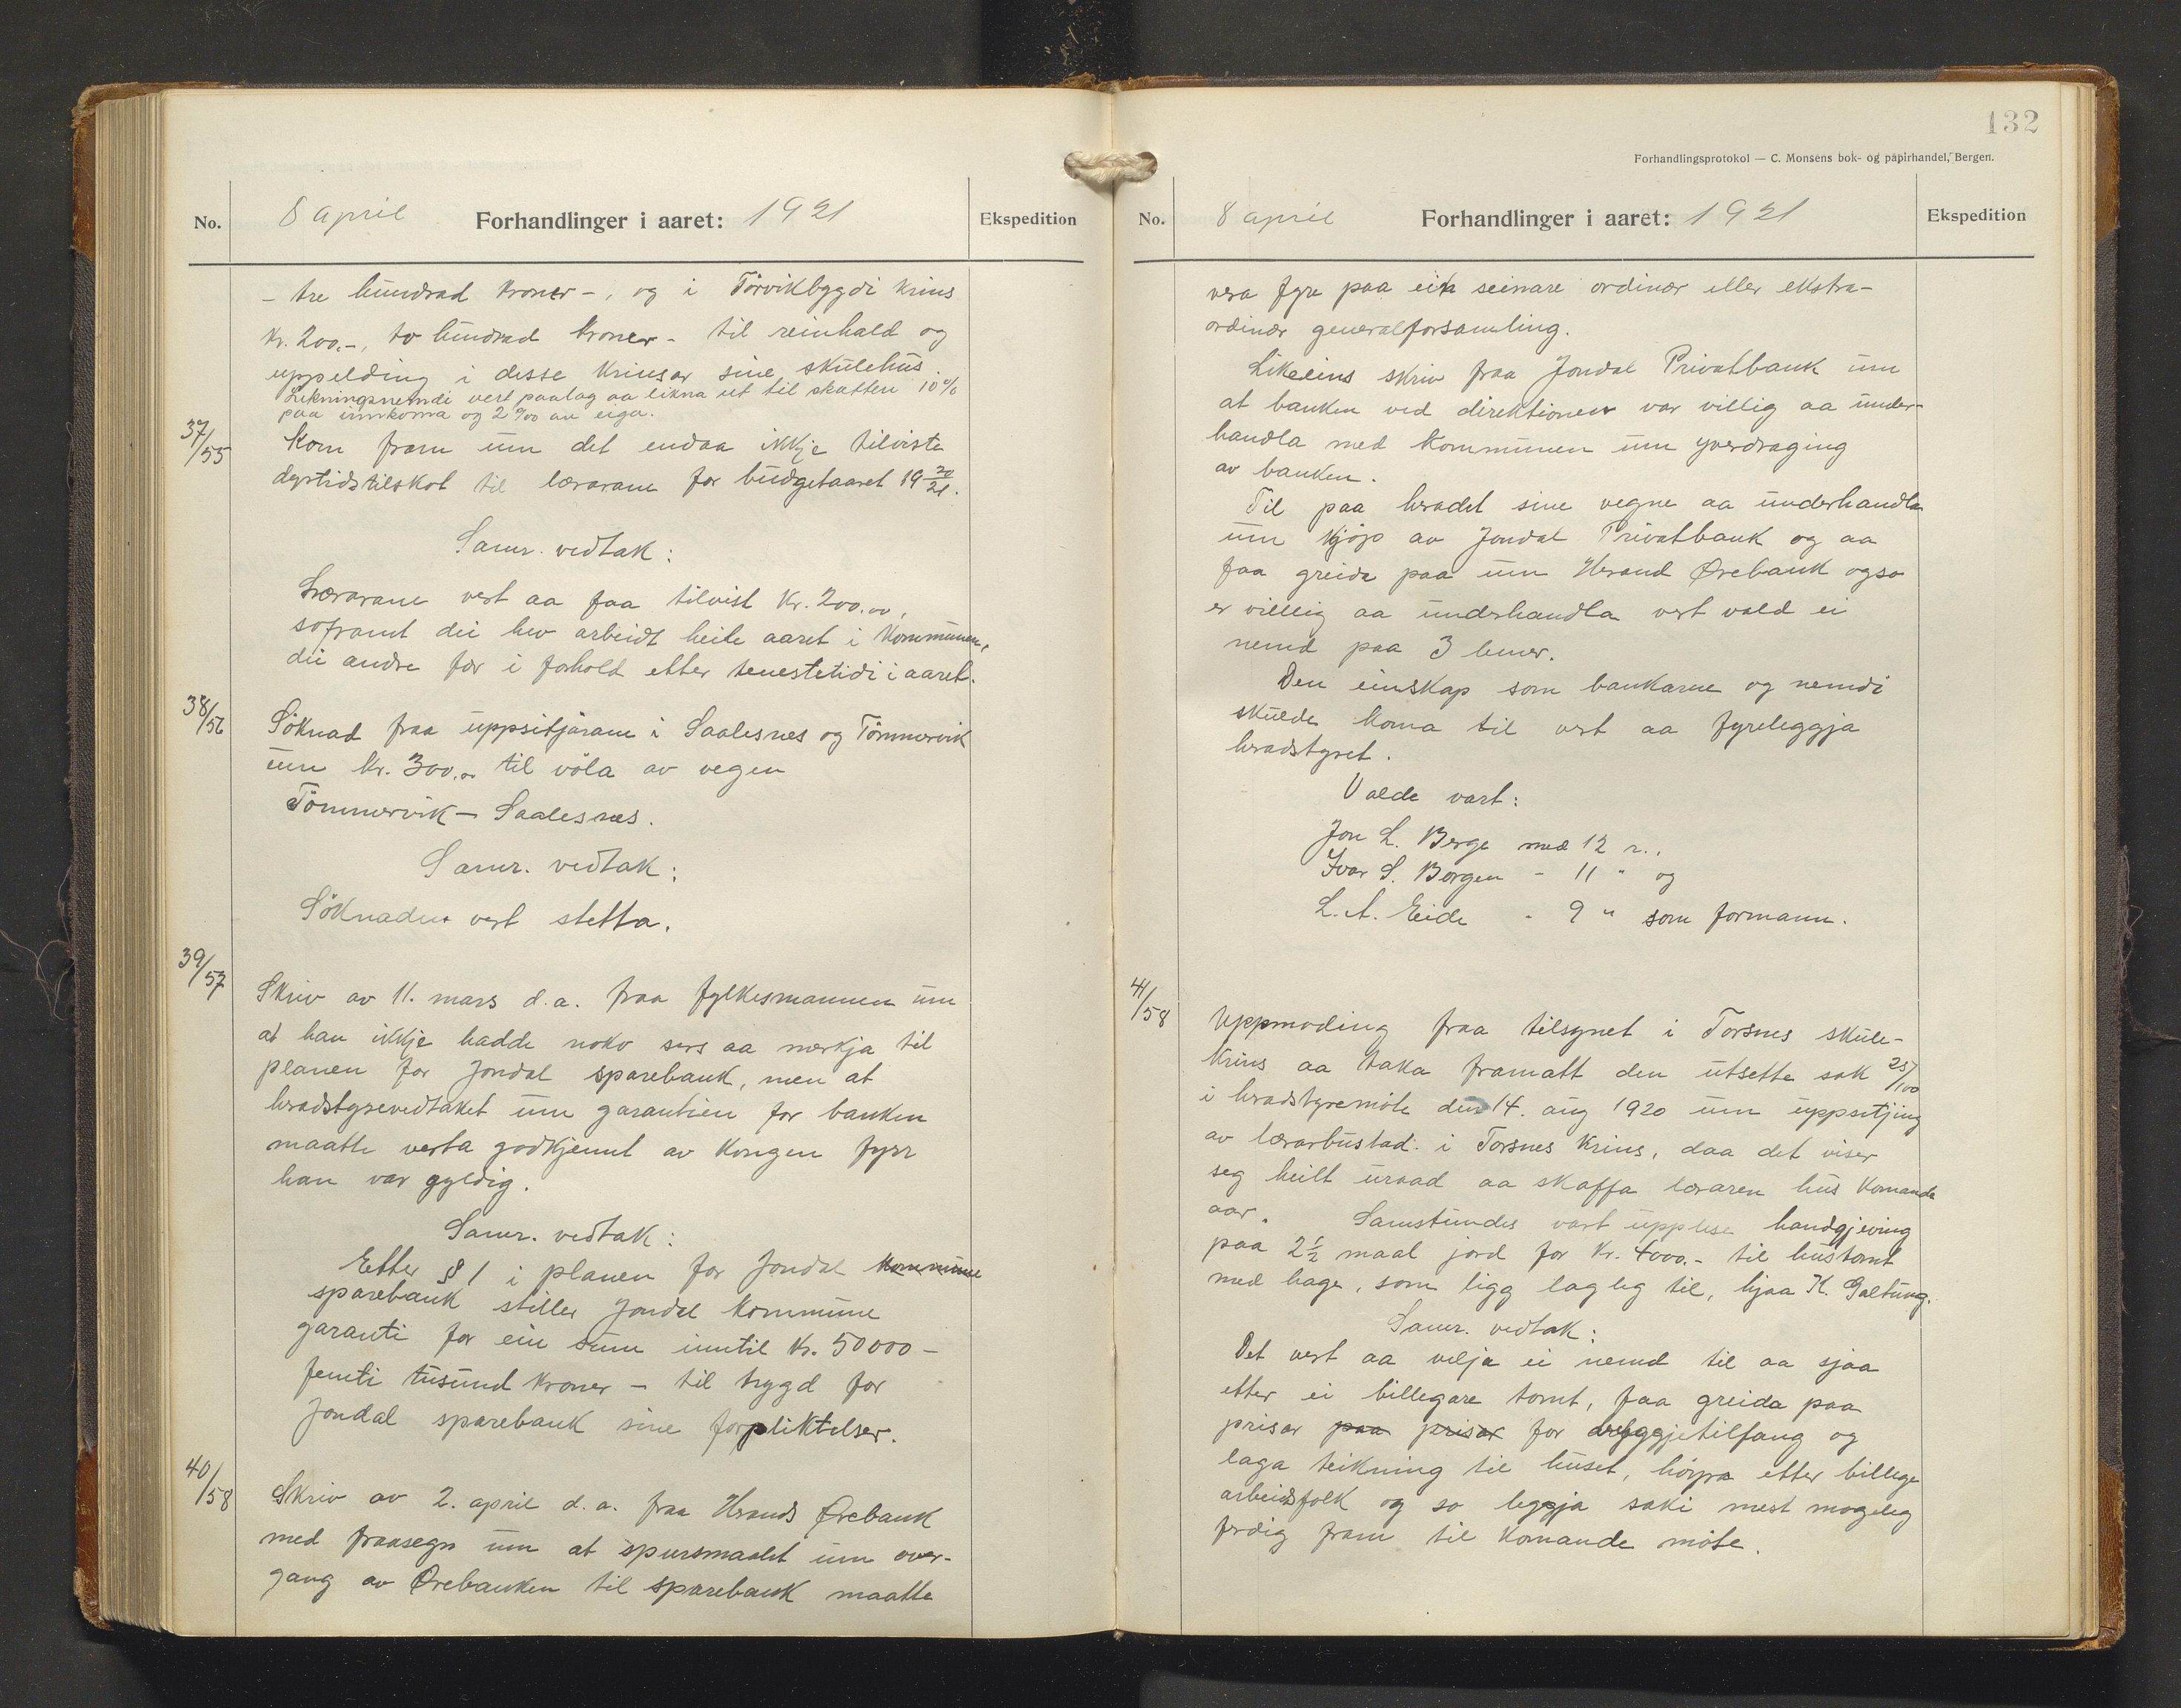 No.
8 april
Forhandlinger i aaret: 1921
Ekspedition
- tre hundrad kroner -, og i Törvikbygdi krins
kr. 200.-, to hundrad kroner - til reinhald og
uppelding i desse krinsar sine skulehus.
Likningsnemdi vert paalag aa likna ut til skatten 10%
paa innkoma og 2 ‰ av eiga.
37/55
Kom fram um det endaa ikkje tilviste
dyrtidstilskot til lærarane for budgetaaret 19 20/21.
Samr. vedtak:
Lærarane vert aa faa tilvist kr. 200.00,
soframt dei hev arbeidt heile aaret i kommunen,
dei andre fær i forhold etter tenestetidi i aaret.
38/56
Söknad fraa uppsitjarane i Saalesnes og Tömmervik
um kr. 300.00 til völa av vegen
Tömmervik - Saalesnes.
Samr. vedtak:
Söknaden vert stetta.
39/57
Skriv av 11. mars d.a. fraa fylkesmannen um
at han ikkje hadde noko sers aa merkja til
planen for Jondal sparebank, men at
heradstyrevedtaket um garantien for banken
maatte verta godkjennt av Kongen fyrr
han var gyldig.
Samr. vedtak:
Etter § 1 i planen for Jondal kommune
sparebank stiller Jondal kommune
garanti for ein sum inntil kr. 50000 -
femti tusund kroner - til trygd for
Jondal sparebank sine forpliktelser.
40/58
Skriv av 2. april d.a. fraa Herands Örebank
med fraasegn um at spursmaalet um over-
gang av Örebanken til sparebank maatte
132
Forhandlingsprotokol — C. Monsens bok- og papirhandel, Bergen.
No.
8 april
Forhandlinger i aaret: 1921
Ekspedition
vera fyre paa ein seinare ordinær eller ekstra-
ordinær generalforsamling.
Likeeins skriv fraa Jondal Privatbank um
at banken ved direktionen var villig aa under-
handla med kommunen um yverdraging
av banken.
Til paa heradet sine vegne aa underhandla
um kjöp av Jondal Privatbank og aa
faa greida paa um Herand Ørebank ogso
er villig aa underhandla vert vald ei
nemd paa 3 lemer.
Den einskap som bankarne og nemdi
skulde koma til vert aa fyreleggja
heradstyret.
Valde vart:
Jon L. Berge med 12 r.,
Ivar S. Borgen - 11 " og
L. A. Eide - 9 " som formann.
41/58
Uppmoding fraa tilsynet i Torsnes skule-
krins aa taka framatt den utsette sak 25/100
i heradstyremöte den 14. aug 1920 um uppsetjing
av lærarbustad i Torsnes krins, daa det viser
seg heilt uraad aa skaffa læraren hus komande
aar. Samstundes vart upplese handgjeving
paa 2 1/2 maal jord for kr. 4000.- til hustomt
med hage, som ligg lagleg til, hjaa K. Galtung.
Samr. vedtak:
Det vert aa velja ei nemd til aa sjaa
etter ei billegare tomt, faa greida paa
prisar paa prisar for byggjetilfang og
laga teikning til huset, höyra etter billege
arbeidsfolk og so leggja saki mest mogeleg
ferdig fram til komande möte.